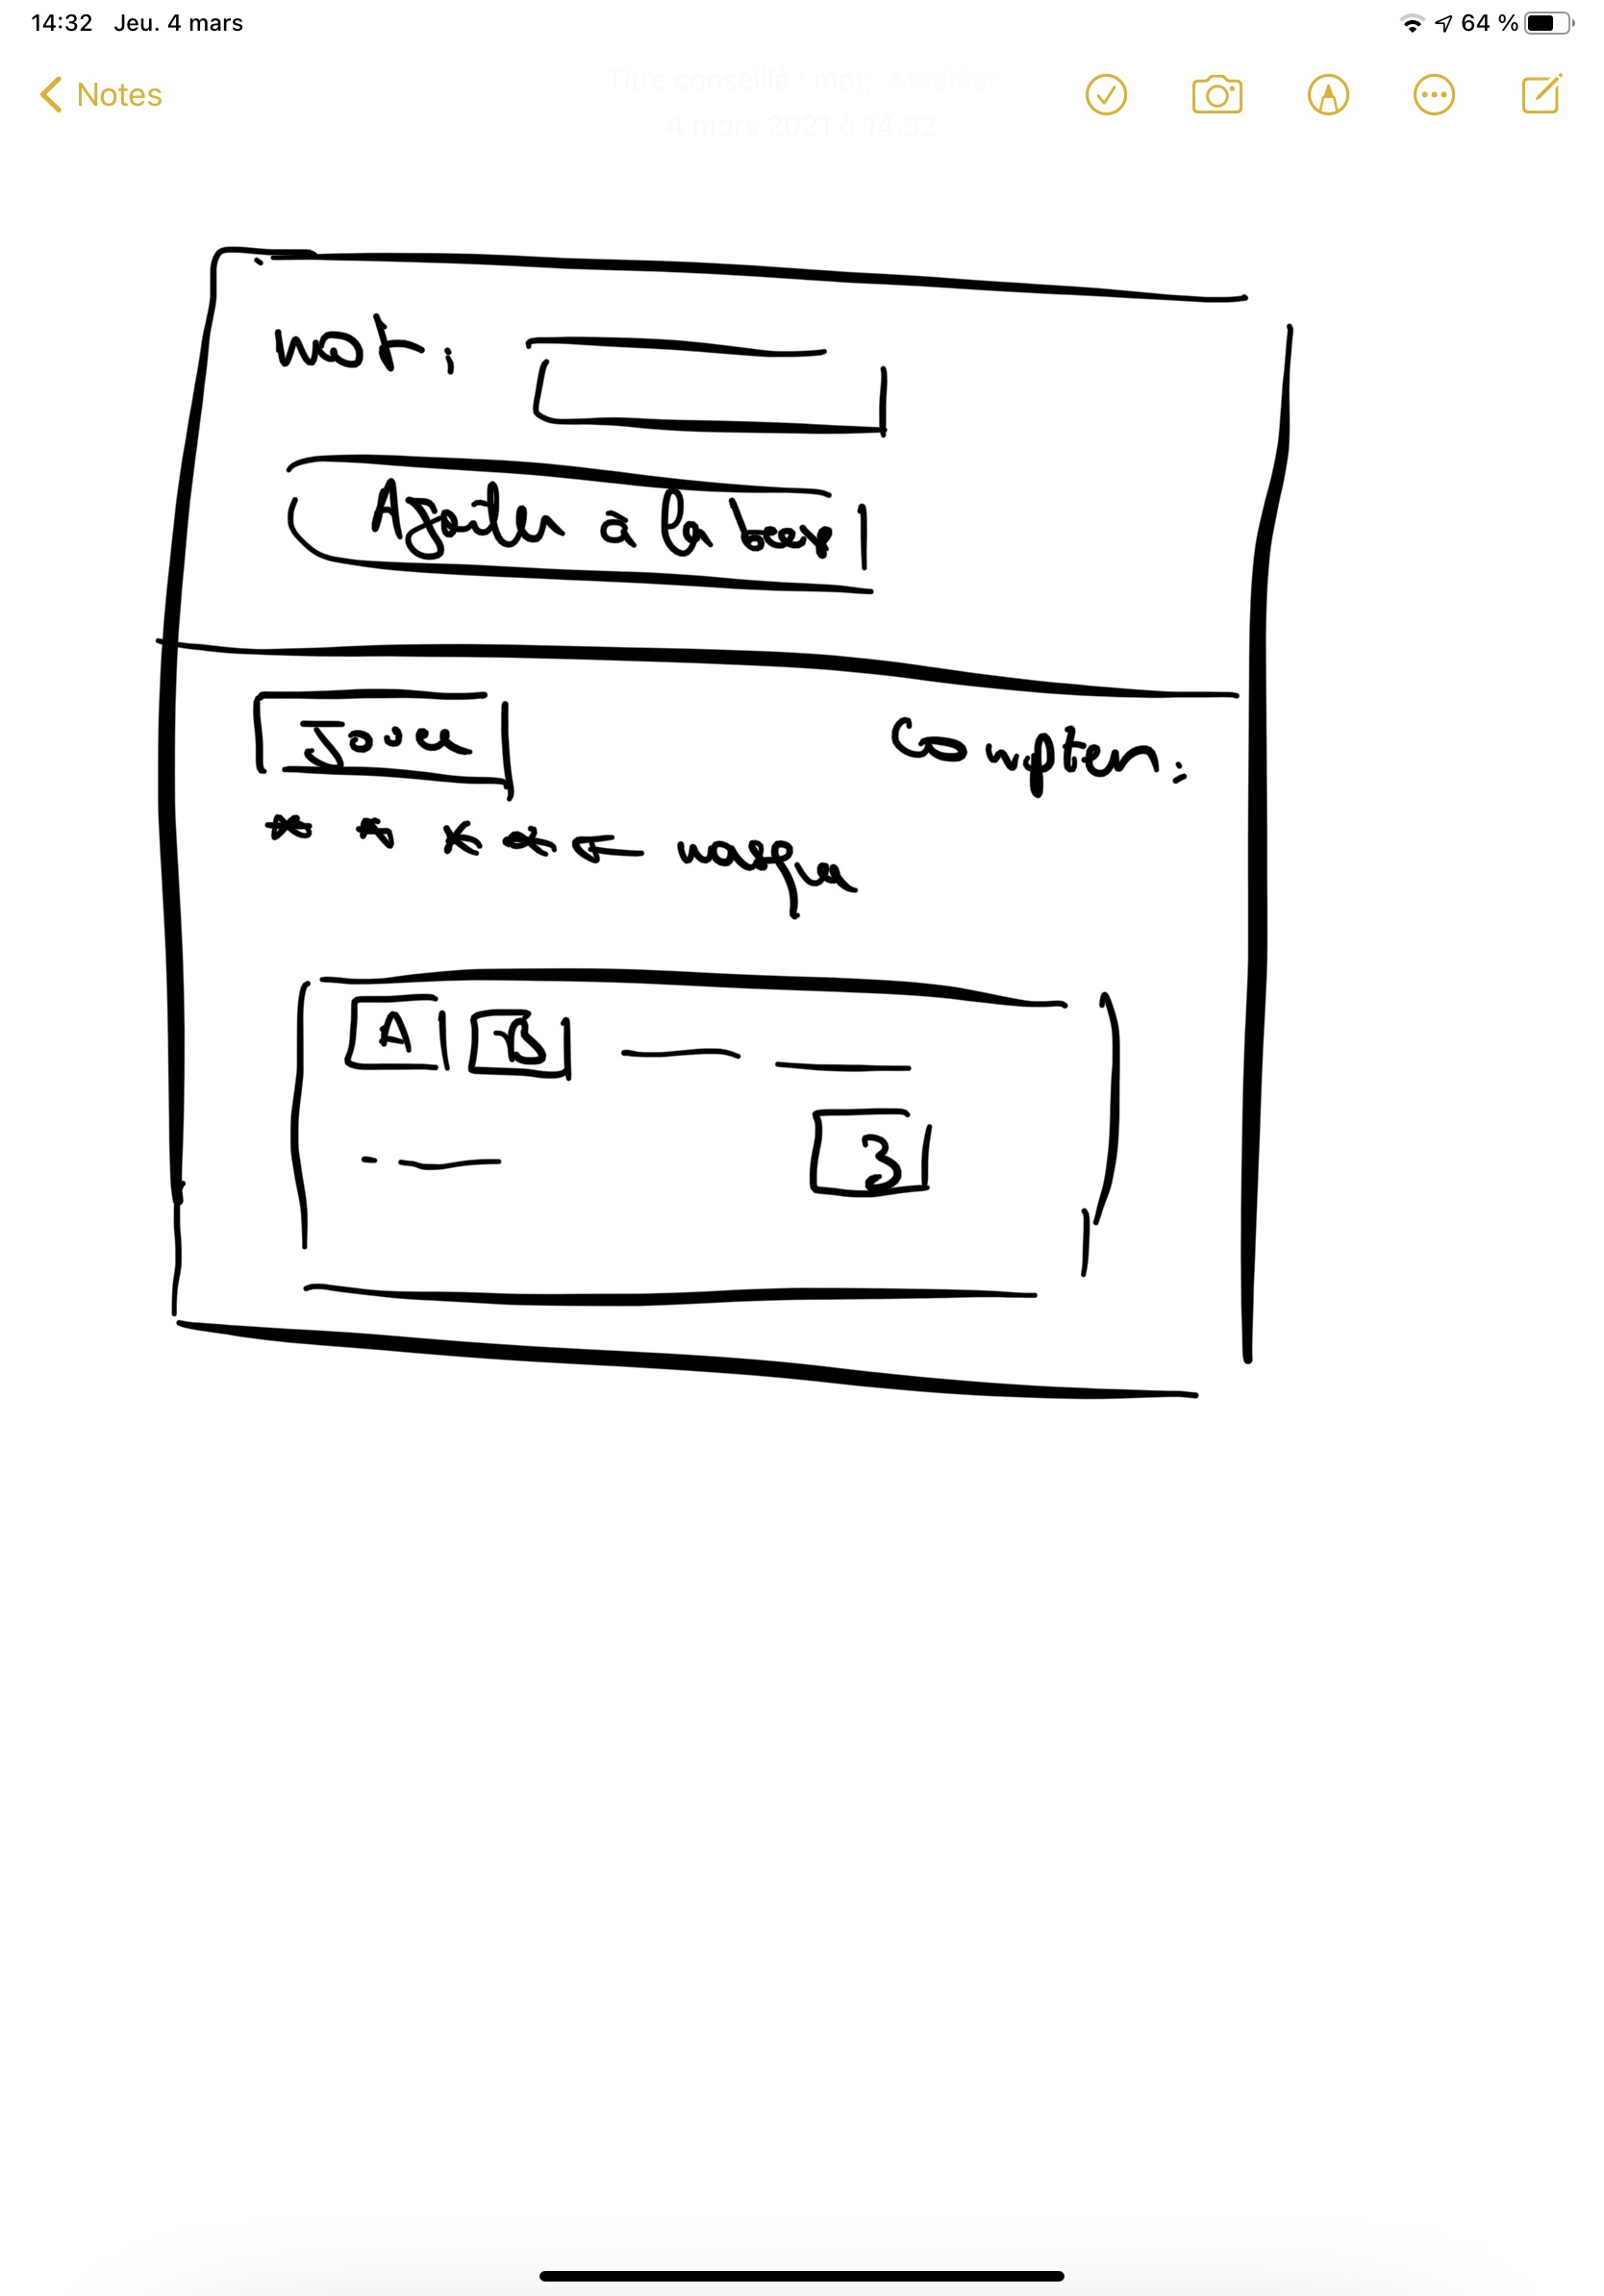 14:32 Jeu. 4 mars
64 %
Notes
Titre conseillé : mot; Modifier
4 mars 2021 à 14:32
mot:
Ajouter à la base
Jouer
Compteur:
* * * * ← masque
A B
Z